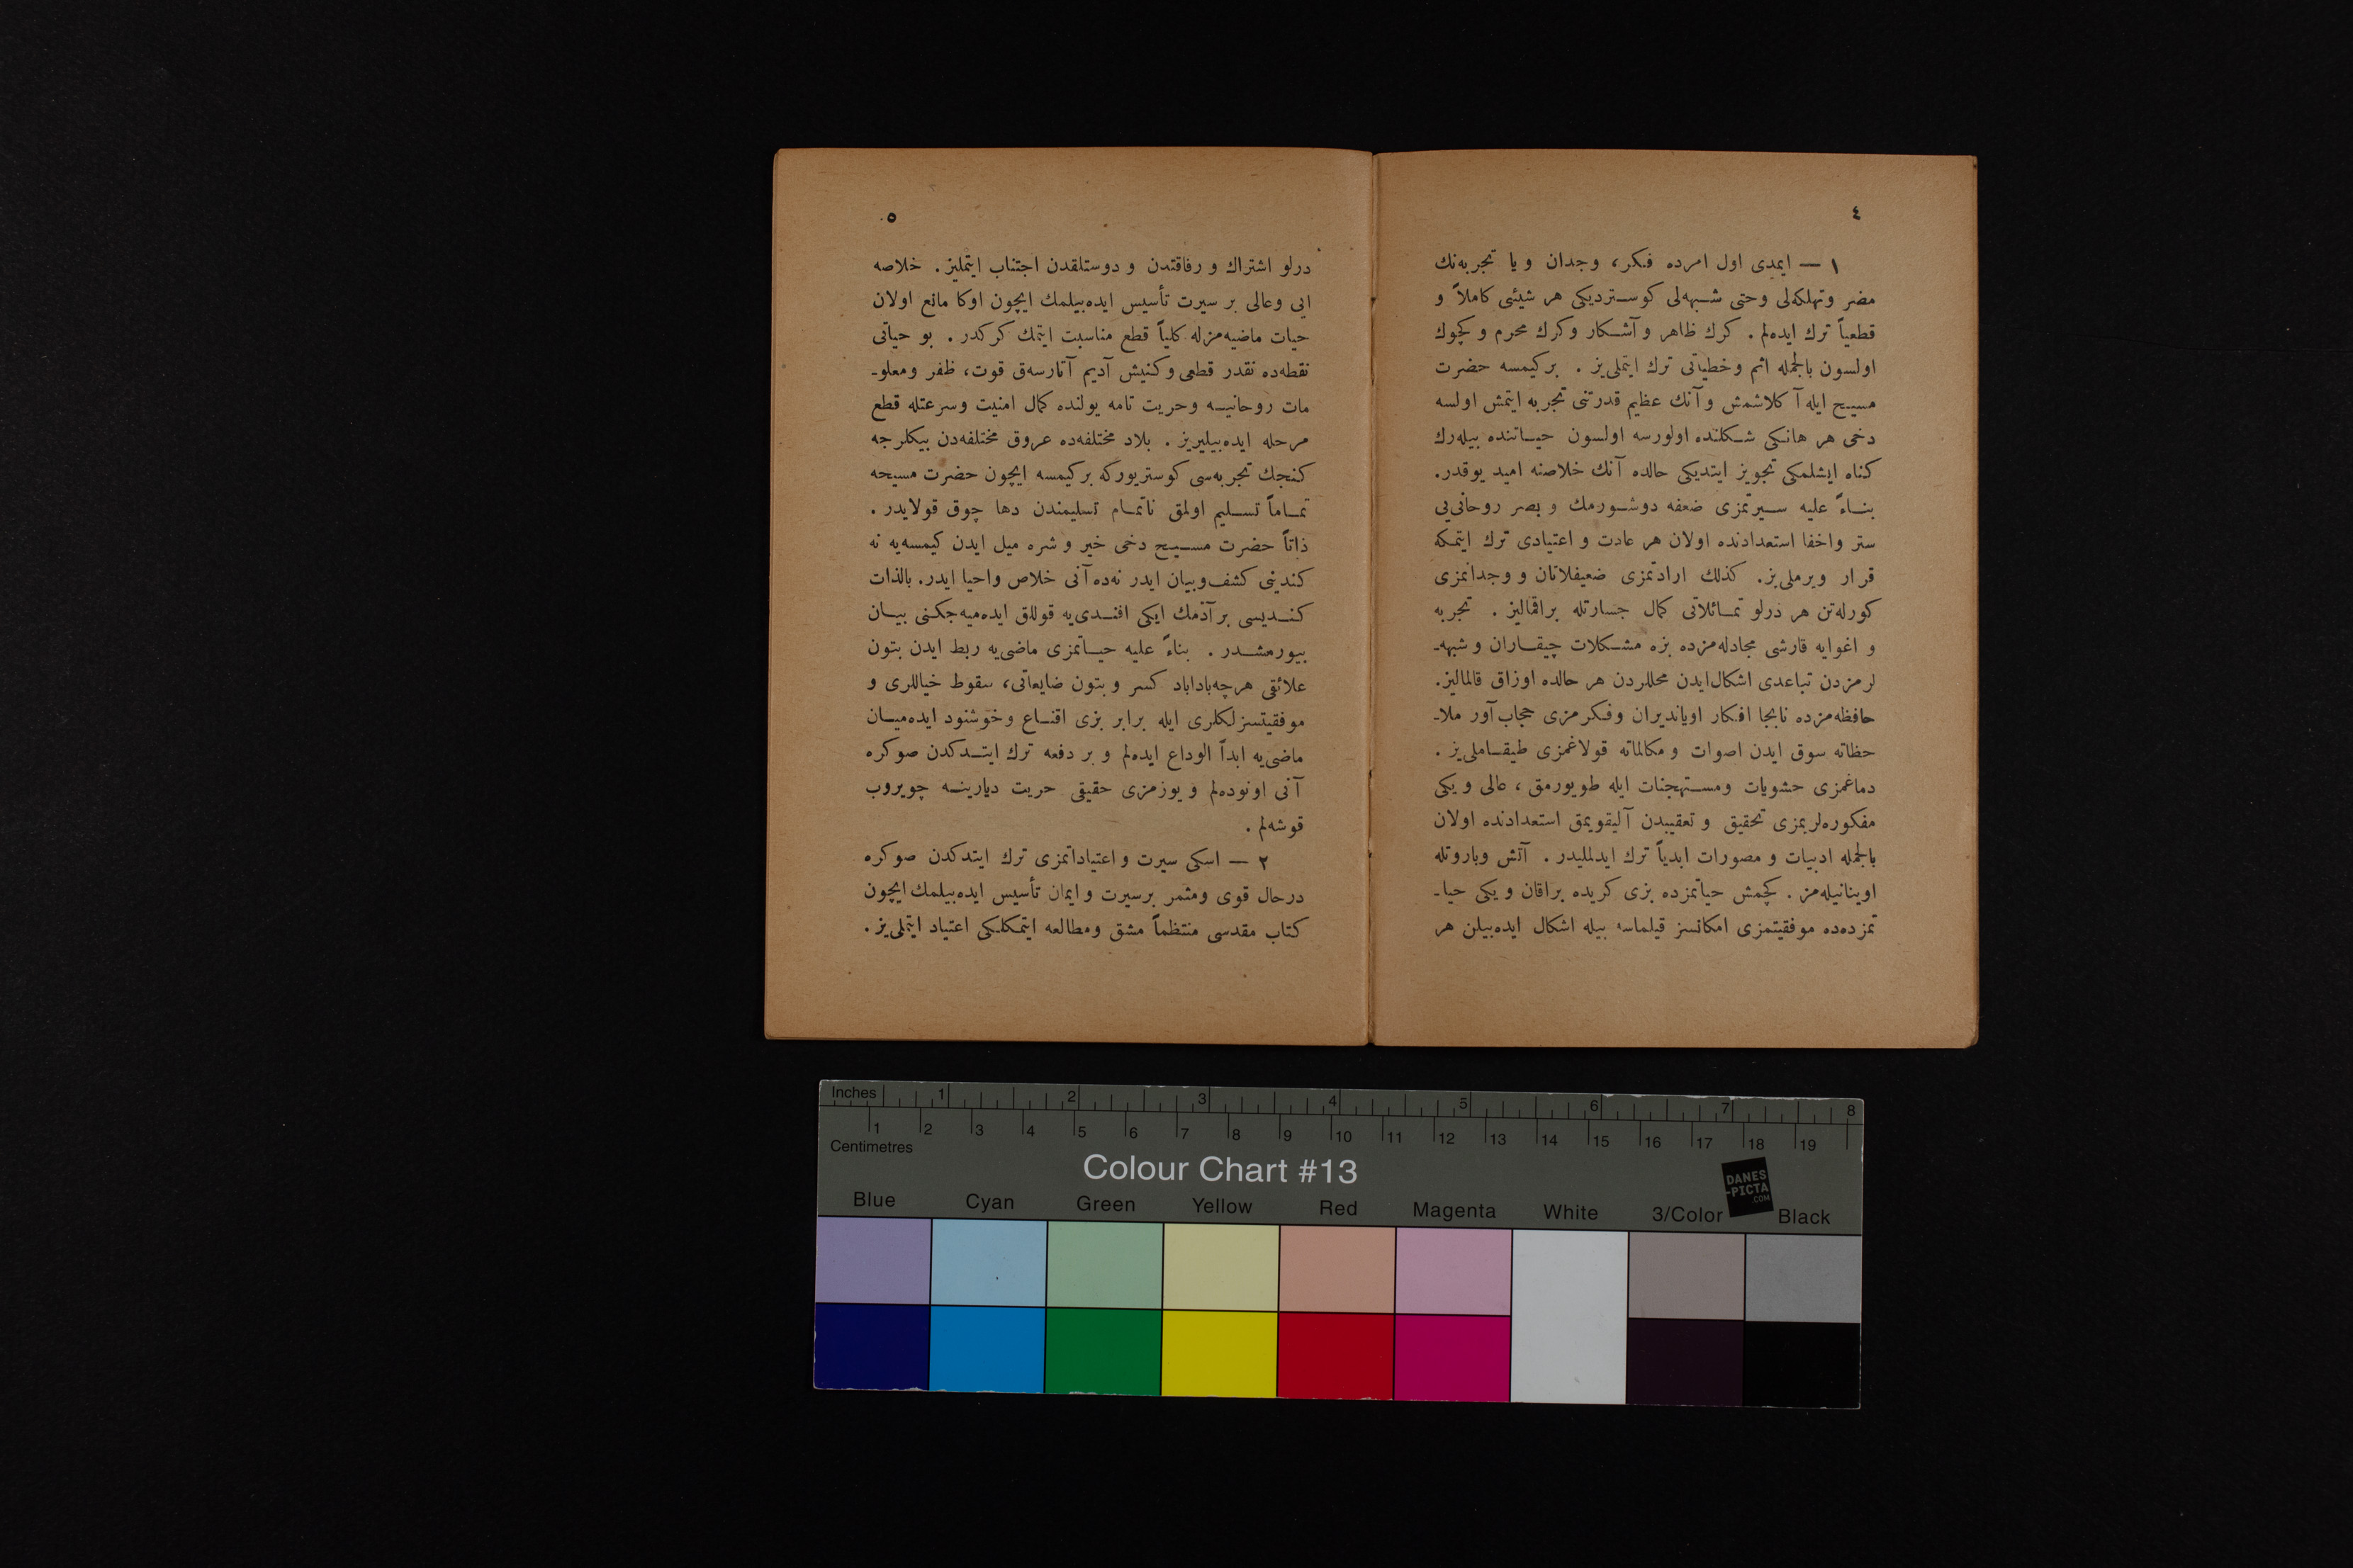 ٤
١ — ایمدی اول امرده فکر، وجدان و یا تجربه‌نك
مضر وتهلکه‌لی وحتی شبهه‌لی کوستردیکی هر شیئی کاملاً و
قطعیاً ترك ایده‌لم . کرك ظاهر و آشکار وکرك محرم و کچوك
اولسون بالجمله اثم وخطیاتی ترك ایتملی‌یز . برکیمسه حضرت
مسیح ایله آکلاشمش و آنك عظیم قدرتنی تجربه ایتمش اولسه
دخی هر هانکی شکلنده اولورسه اولسون حیاتنده بیله‌رك
کناه ایشلمکی تجویز ایتدیکی حالده آنك خلاصنه امید یوقدر.
بناءً علیه سیرتمزی ضعفه دوشورمك و بصر روحانی‌یی
ستر واخفا استعدادنده اولان هر عادت و اعتیادی ترك ایتمکه
قرار ویرملی‌یز. کذلك ارادتمزی ضعیفلاتان و وجدانمزی
کورله‌تن هر درلو تمائلاتی کمال جسارتله براقمالیز . تجربه
و اغوایه قارشی مجادله‌مزده بزه مشکلات چیقاران و شبهه‌ـ
لرمزدن تباعدی اشکال‌ایدن محللردن هر حالده اوزاق قالمالیز.
حافظه‌مزده نابجا افکار اویاندیران وفکرمزی حجاب‌آور ملاـ
حظاته سوق ایدن اصوات و مکالماته قولاغمزی طیقاملی‌یز .
دماغمزی حشویات ومستهجنات ایله طویورمق ، عالی و یکی
مفکوره‌لریمزی تحقیق و تعقیبدن آلیقویمق استعدادنده اولان
بالجمله ادبیات و مصورات ابدیاً ترك ایدلملیدر . آتش وباروتله
اوینانیله‌مز . کچمش حیاتمزده بزی کریده براقان و یکی حیاـ
تمزده‌ده موفقیتمزی امکانسز قیلماسه بیله اشکال ایده‌بیلن هر
٥
درلو اشتراك و رفاقتدن و دوستلقدن اجتناب ایتملیز . خلاصه
ایی وعالی بر سیرت تأسیس ایده‌بیلمك ایچون اوکا مانع اولان
حیات ماضیه‌مزله کلیاً قطع مناسبت ایتمك کرکدر . بو حیاتی
نقطه‌ده نقدر قطعی وکنیش آدیم آتارسه‌ق قوت، ظفر ومعلوـ
مات روحانیه وحریت تامه یولنده کمال امنیت وسرعتله قطع
مرحله ایده‌بیلیریز . بلاد مختلفه‌ده عروق مختلفه‌دن بیکلرجه
کنجك تجربه‌سی کوستریورکه برکیمسه ایچون حضرت مسیحه
تماماً تسلیم اولمق ناتمام تسلیمندن دها چوق قولایدر .
ذاتاً حضرت مسیح دخی خیر و شره میل ایدن کیمسه‌یه نه
کندینی کشف‌وبیان ایدر نه‌ده آنی خلاص واحیا ایدر. بالذات
کندیسی بر آدمك ایکی افندی‌یه قوللق ایده‌میه‌جکنی بیان
بیورمشدر . بناءً علیه حیاتمزی ماضی‌یه ربط ایدن بتون
علائقی هرچه‌باداباد کسر و بتون ضایعاتی، سقوط خیاللری و
موفقیتسزلکلری ایله برابر بزی اقناع وخوشنود ایده‌میان
ماضی‌یه ابداً الوداع ایده‌لم و بر دفعه ترك ایتدکدن صوکره
آنی اونوده‌لم و یوزمزی حقیقی حریت دیارینه چویروب
قوشه‌لم .
٢ — اسکی سیرت و اعتیاداتمزی ترك ایتدکدن صوکره
درحال قوی ومثمر برسیرت و ایمان تأسیس ایده‌بیلمك ایچون
کتاب مقدسی منتظماً مشق ومطالعه ایتمکلکی اعتیاد ایتملی‌یز .
Inches 1 2 3 4 5 6 7 8
1 2 3 4 5 6 7 8 9 10 11 12 13 14 15 16 17 18 19
Centimetres
Colour Chart #13
DANES
-PICTA
.COM
Blue Cyan Green Yellow Red Magenta White 3/Color Black